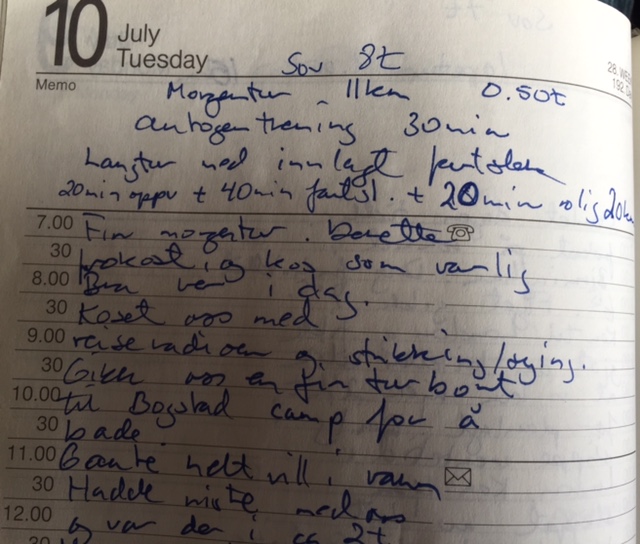 10 July
Tuesday
Sov 8t
28. WE
192. Da
Memo
Morgentur 11km 0.50t
autogen trening 30min
Langtur med innlagt
20min oppv + 40min fartsl. + 20min rolig 20k
7.00 Fin morgentur.
30 frokost, og kos som vanlig
8.00 Bra vær i dag.
30 Koset oss med
9.00 reiseradioen og strikking/
30 Gikk oss en fin tur bort
10.00 til Bogstad camp for å
30 bade.
11.00 Gaute helt vill i
30 Hadde niste med oss
12.00 og var der i ca 2t
30